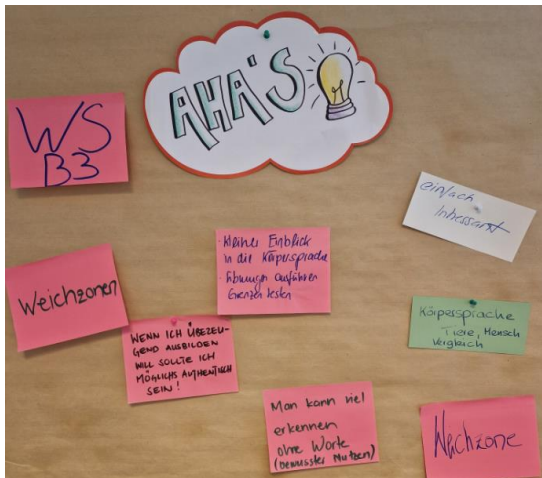 AHA'S
WS
B3
einfach
Weichzonen
· kleiner Einblick
in die Körpersprache
· Übungen ausführen
Grenzen testen
Körpersprache
Tiere, Mensch
Vergleich
WENN ICH ÜBEZEU-
GEND AUSBILDEN
WILL SOLLTE ICH
MÖGLICHS AUTHENTISCH
SEIN!
Man kann viel
erkennen
ohne Worte
(bewusster Nutzen)
Weichzone